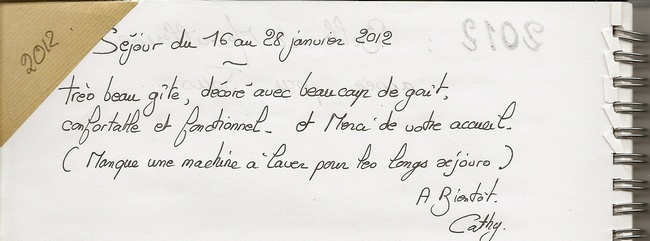 2012
Séjour du 16 au 28 janvier 2012
~
très beau gîte, décoré avec beaucoup de goût,
confortable et fonctionnel_ et Merci de votre accueil_
( Manque une machine à laver pour les longs séjours )
A Bientôt.
Cathy.